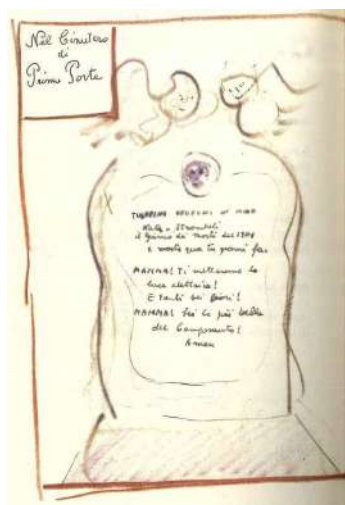 Nel Cimitero
di
Prima Porta
Nata a Stromboli
il giorno di morti del 1904
e morta qua tre giorni fa
MAMMA! Ti metteremo la
luce elettrica!
E tanti bei fiori!
MAMMA! Sei la più bella
del Camposanto!
Amen